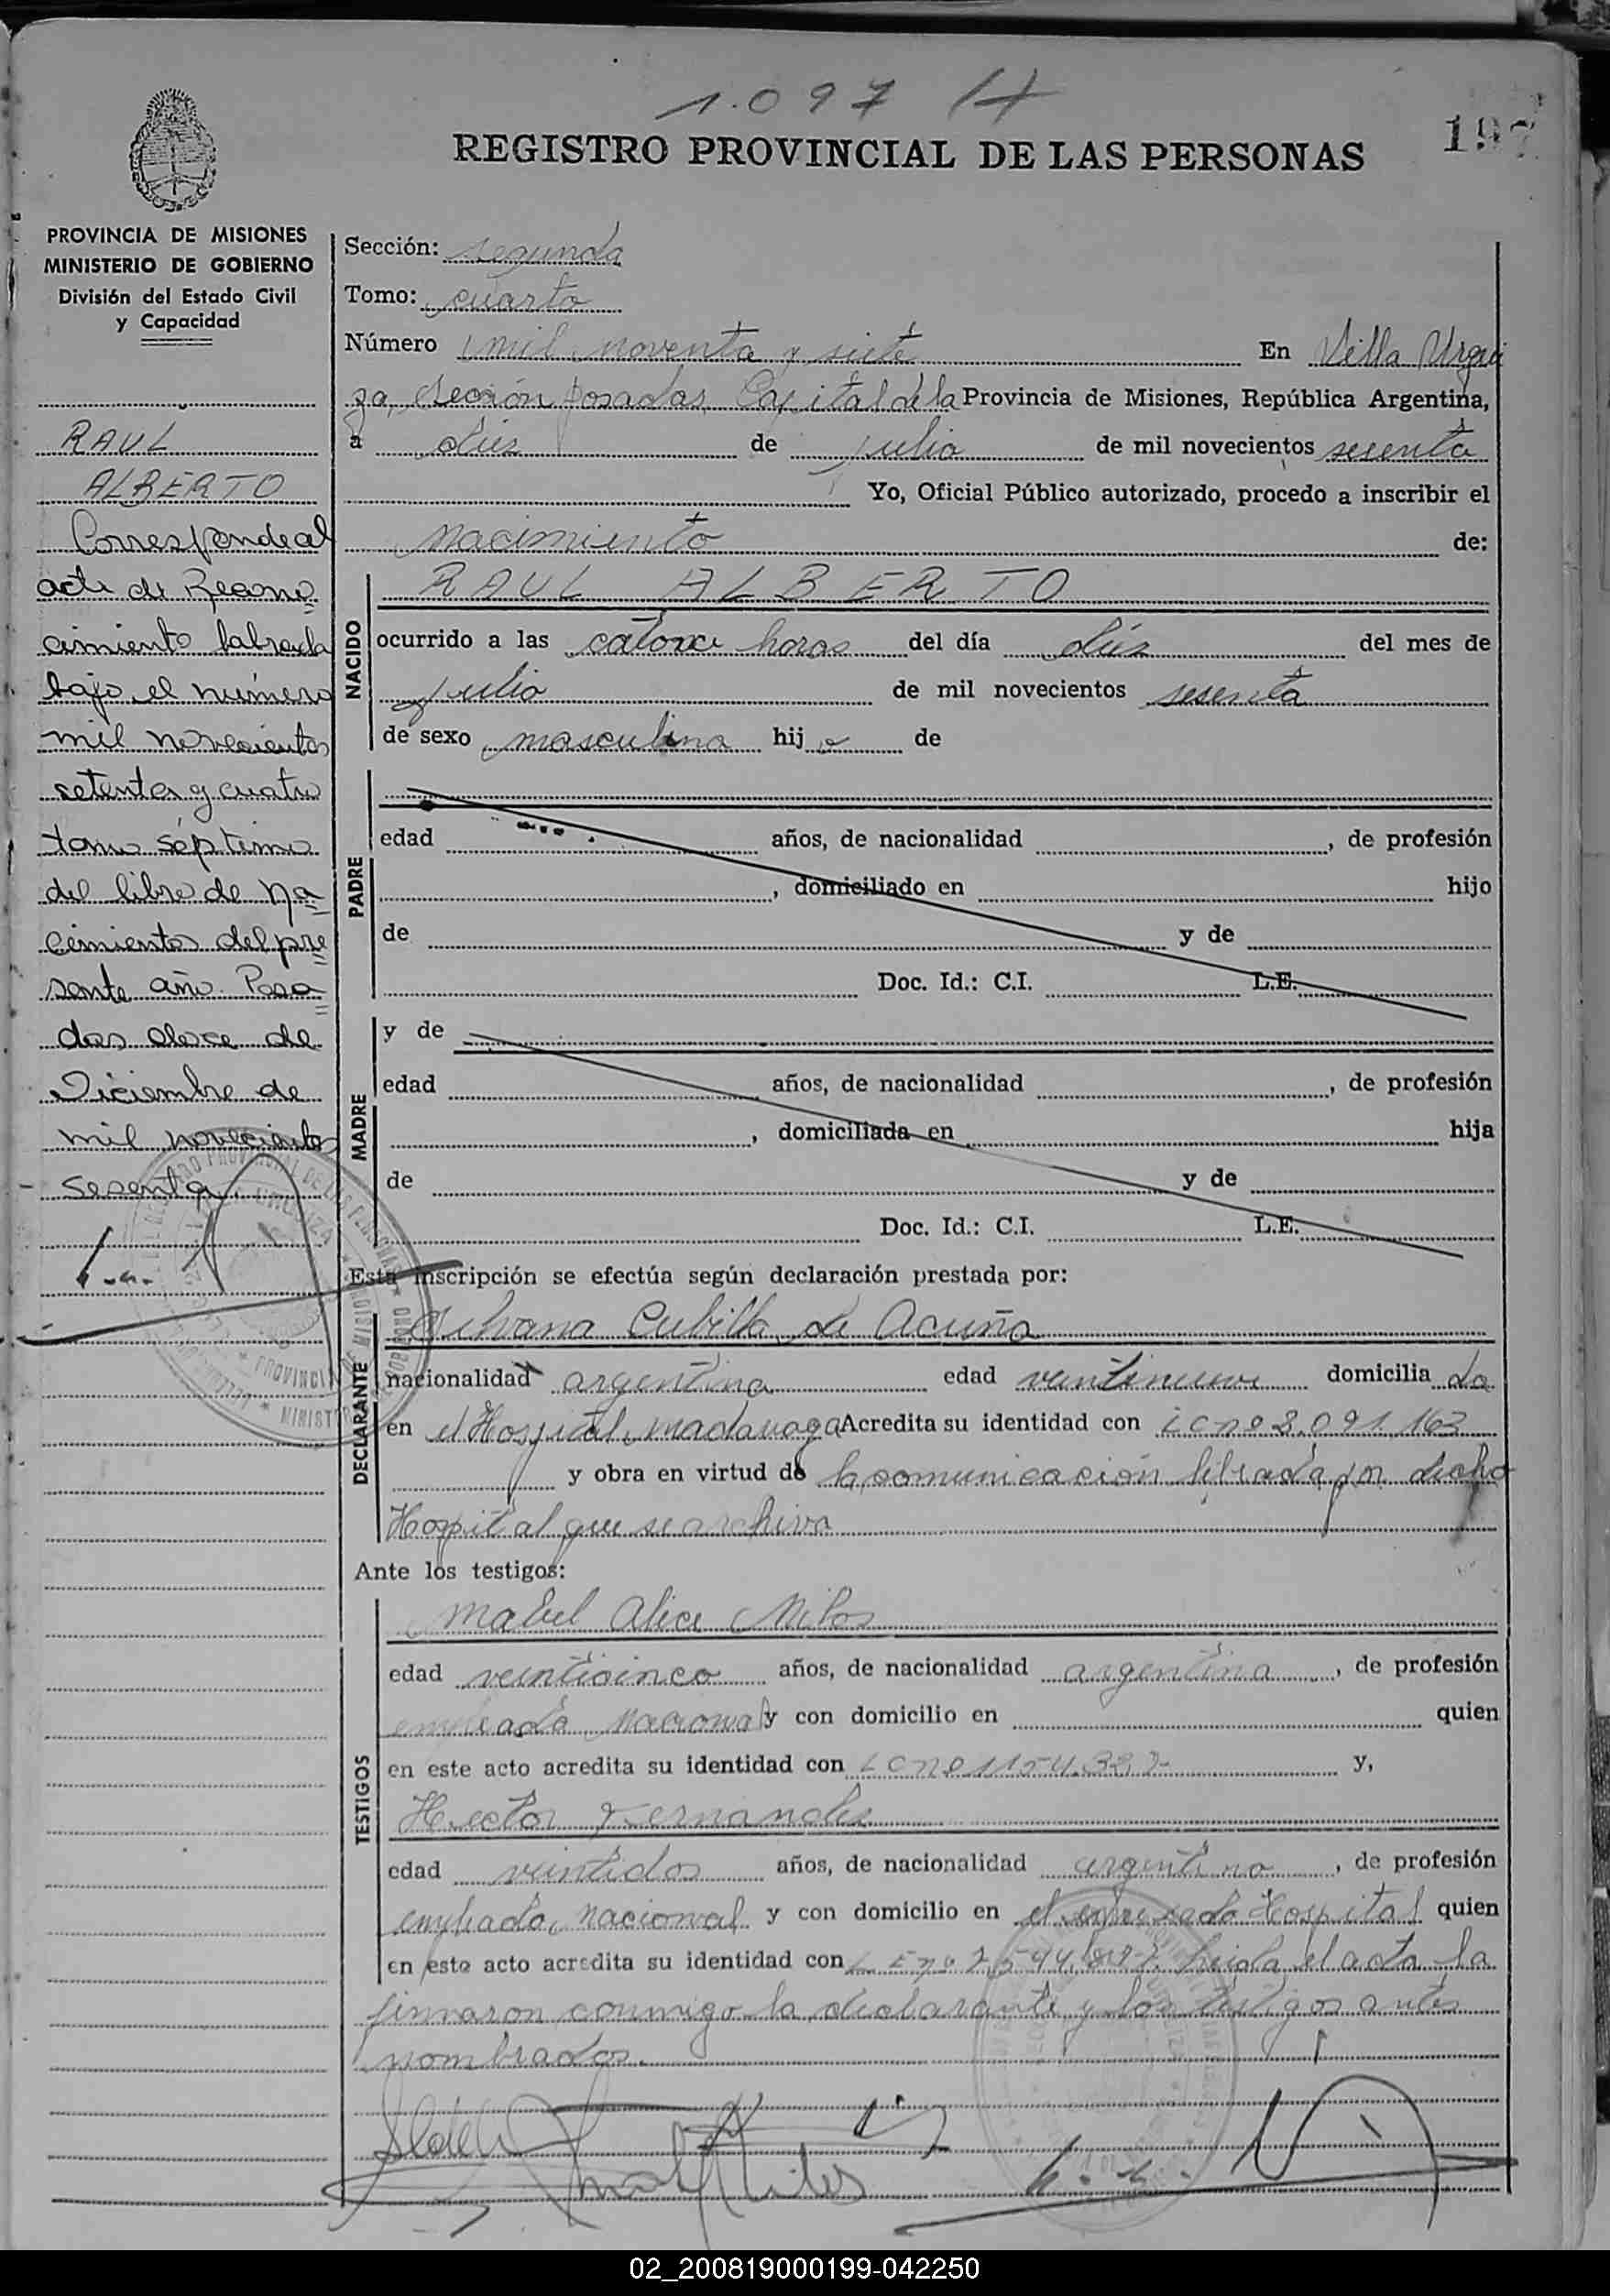 1.097
197
REGISTRO PROVINCIAL DE LAS PERSONAS
PROVINCIA DE MISIONES
MINISTERIO DE GOBIERNO
División del Estado Civil
y Capacidad
RAUL
ALBERTO
Corresponde al
acta de Recono
cimiento labrada
bajo el número
mil novecientos
setenta y cuatro
tomo séptimo
del libro de Na
cimientos del pre
sente año. Posa
das doce de
Diciembre de
mil novecientos
sesenta
Sección: segunda
Tomo: cuarto
Número mil noventa y siete En Villa Urqui
za, Sección Posadas, Capital de la Provincia de Misiones, República Argentina,
a diez de julio de mil novecientos sesenta
Yo, Oficial Público autorizado, procedo a inscribir el
nacimiento de:
NACIDO
RAUL ALBERTO
ocurrido a las catorce horas del día diez del mes de
julio de mil novecientos sesenta
de sexo masculino hij o de
PADRE
edad años, de nacionalidad , de profesión
, domiciliado en hijo
de y de
Doc. Id.: C.I. L.E.
MADRE
y de
edad años, de nacionalidad , de profesión
, domiciliada en hija
de y de
Doc. Id.: C.I. L.E.
Esta inscripción se efectúa según declaración prestada por:
DECLARANTE
Silvana Cubilla de Acuña
nacionalidad argentina edad veintinueve domicilia da
en el Hospital Madariaga Acredita su identidad con 3.091.163
y obra en virtud de la comunicación librada por dicho
Hospital que se archiva
Ante los testigos:
TESTIGOS
Mabel Alice Milos
edad veinticinco años, de nacionalidad argentina , de profesión
empleada Nacional y con domicilio en quien
en este acto acredita su identidad con LC nº 1154.332 y,
Hector Fernandez
edad veintidos años, de nacionalidad argentino , de profesión
empleado nacional y con domicilio en el expresado Hospital quien
en este acto acredita su identidad con L E nº Leida el acta la
firmaron conmigo la declarante y los testigos antes
nombrados.
02_200819000199-042250